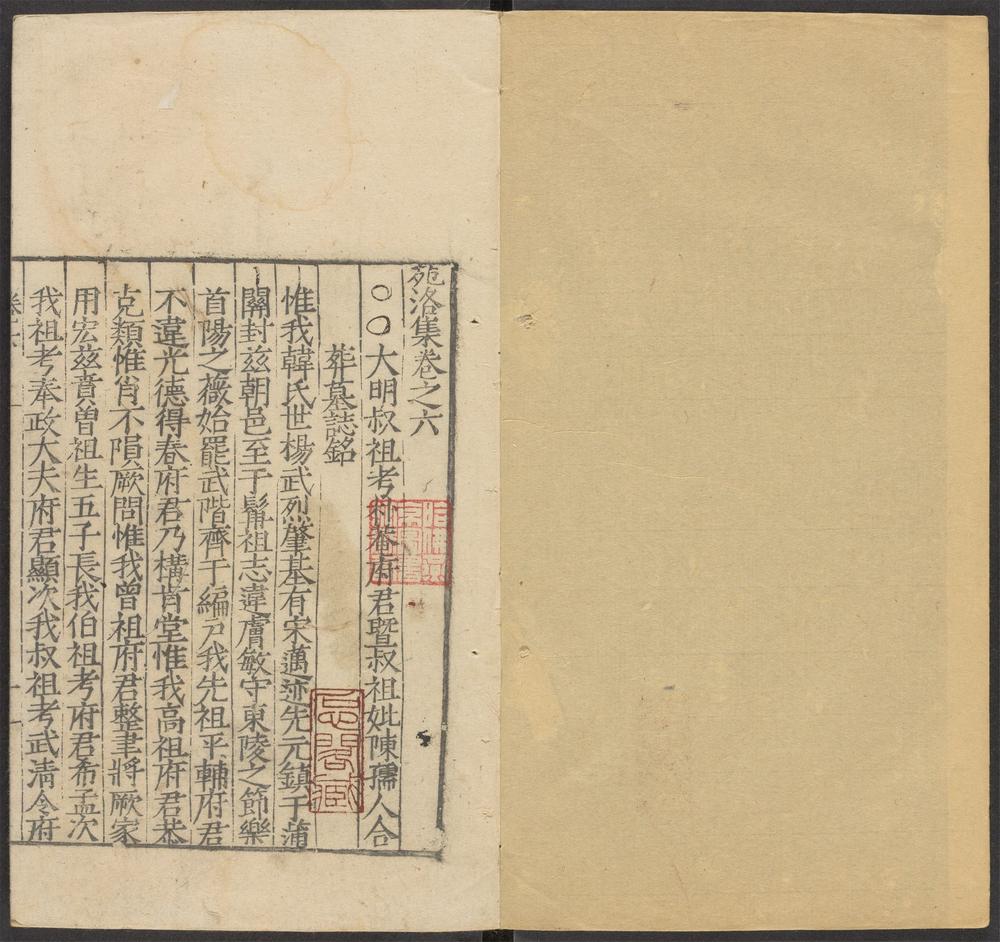 苑洛集卷之六
○○大明叔祖考朴菴府君暨叔祖妣陳孺人合
葬墓誌銘
惟我韓氏世楊武烈肇基有宋邁迹先元鎮于蒲
關封茲朝邑至于髯祖志違膚敏守東陵之節樂
首陽之薇始罷武階齊于編戶我先祖平輔府君
不違光德得春府君乃構肯堂惟我高祖府君恭
克類惟肖不隕厥問惟我曾祖府君整聿將厥家
用宏茲賁曾祖生五子長我伯祖考府君希孟次
我祖考奉政大夫府君顯次我叔祖考武清令府
卷六